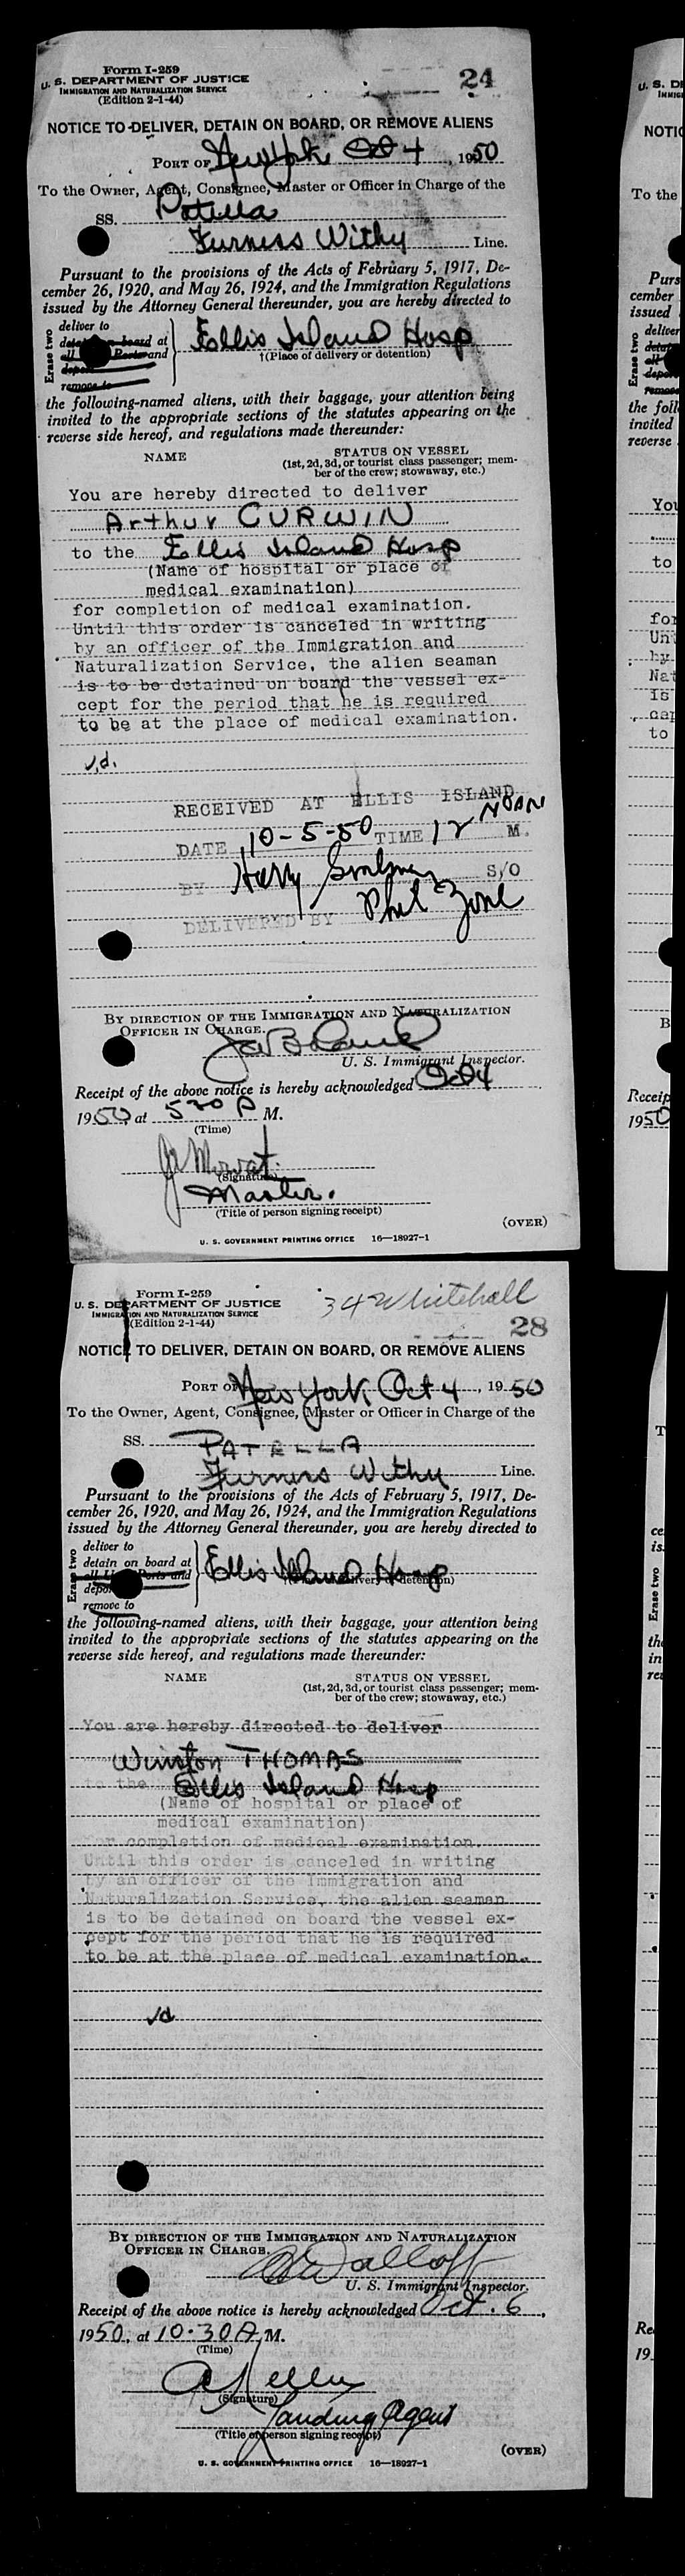 Form I-259
U. S. DEPARTMENT OF JUSTICE
IMMIGRATION AND NATURALIZATION SERVICE
(Edition 2-1-44)
24
NOTICE TO DELIVER, DETAIN ON BOARD, OR REMOVE ALIENS
PORT OF New York Oct 4, 1950
To the Owner, Agent, Consignee, Master or Officer in Charge of the
SS. Patella
Furness Withy Line.
Pursuant to the provisions of the Acts of February 5, 1917, De-
cember 26, 1920, and May 26, 1924, and the Immigration Regulations
issued by the Attorney General thereunder, you are hereby directed to
Erase two
deliver to
detain on board at
all Ports and
depor
remove to
Ellis Island Hosp
†(Place of delivery or detention)
the following-named aliens, with their baggage, your attention being
invited to the appropriate sections of the statutes appearing on the
reverse side hereof, and regulations made thereunder:
NAME
STATUS ON VESSEL
(1st, 2d, 3d, or tourist class passenger; mem-
ber of the crew; stowaway, etc.)
You are hereby directed to deliver
Arthur CURWIN
to the Ellis Island Hosp
(Name of hospital or place of
medical examination)
for completion of medical examination.
Until this order is canceled in writing
by an officer of the Immigration and
Naturalization Service, the alien seaman
is to be detained on board the vessel ex-
cept for the period that he is required
to be at the place of medical examination.
v.d.
RECEIVED AT ELLIS ISLAND
DATE 10-5-50 TIME 12 NOON M.
BY Harry S/O
DELIVERED BY Phil Zone
BY DIRECTION OF THE IMMIGRATION AND NATURALIZATION
OFFICER IN CHARGE.
U. S. Immigrant Inspector.
Receipt of the above notice is hereby acknowledged Oct 4
1950 at 530 P M.
(Time)
(Signature)
Master.
(Title of person signing receipt)
(OVER)
U. S. GOVERNMENT PRINTING OFFICE 16—18927-1
Form I-259
U. S. DEPARTMENT OF JUSTICE
IMMIGRATION AND NATURALIZATION SERVICE
(Edition 2-1-44)
34 Whitehall
28
NOTICE TO DELIVER, DETAIN ON BOARD, OR REMOVE ALIENS
PORT OF New York Oct 4, 1950
To the Owner, Agent, Consignee, Master or Officer in Charge of the
SS. PATELLA
Furness Withy Line.
Pursuant to the provisions of the Acts of February 5, 1917, De-
cember 26, 1920, and May 26, 1924, and the Immigration Regulations
issued by the Attorney General thereunder, you are hereby directed to
Erase two
deliver to
detain on board at
all U Ports and
depor
remove to
Ellis Island Hosp
†(Place of delivery or detention)
the following-named aliens, with their baggage, your attention being
invited to the appropriate sections of the statutes appearing on the
reverse side hereof, and regulations made thereunder:
NAME
STATUS ON VESSEL
(1st, 2d, 3d, or tourist class passenger; mem-
ber of the crew; stowaway, etc.)
You are hereby directed to deliver
Winston THOMAS
to the Ellis Island Hosp
(Name of hospital or place of
medical examination)
for completion of medical examination.
Until this order is canceled in writing
by an officer of the Immigration and
Naturalization Service, the alien seaman
is to be detained on board the vessel ex-
cept for the period that he is required
to be at the place of medical examination.
vd
BY DIRECTION OF THE IMMIGRATION AND NATURALIZATION
OFFICER IN CHARGE.
U. S. Immigrant Inspector.
Receipt of the above notice is hereby acknowledged Oct. 6,
1950, at 10.30 A. M.
(Time)
(Signature)
Landing Agent
(Title of person signing receipt)
(OVER)
U. S. GOVERNMENT PRINTING OFFICE 16—18927-1